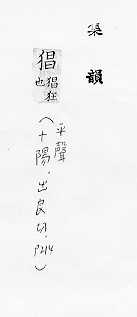 集韻
猖 猖狂
也
平聲
(十陽.出良切.P214)